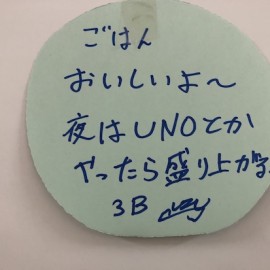 ごはん
おいしいよ～
夜はUNOとか
やったら盛り上がる
3B